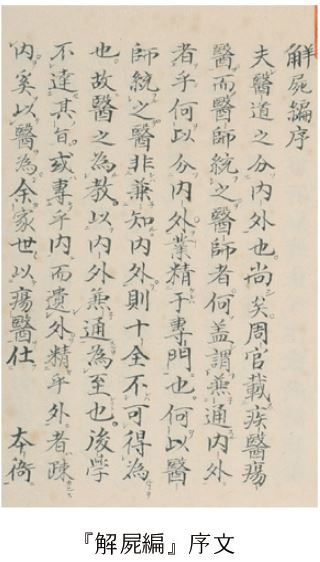 解屍編序
夫醫道之分内外也尚矣周官載疾醫瘍
醫而醫師統之醫師者何盖謂兼通内外
者乎何以分内外業精于專門也何以醫
師統之醫非兼知内外則十全不可得為
也故醫之為教以内外兼通為至也後学
不達其旨或專乎内而遺外精乎外者疎
内奚以醫為余家世以瘍醫仕　本衙
『解屍編』序文